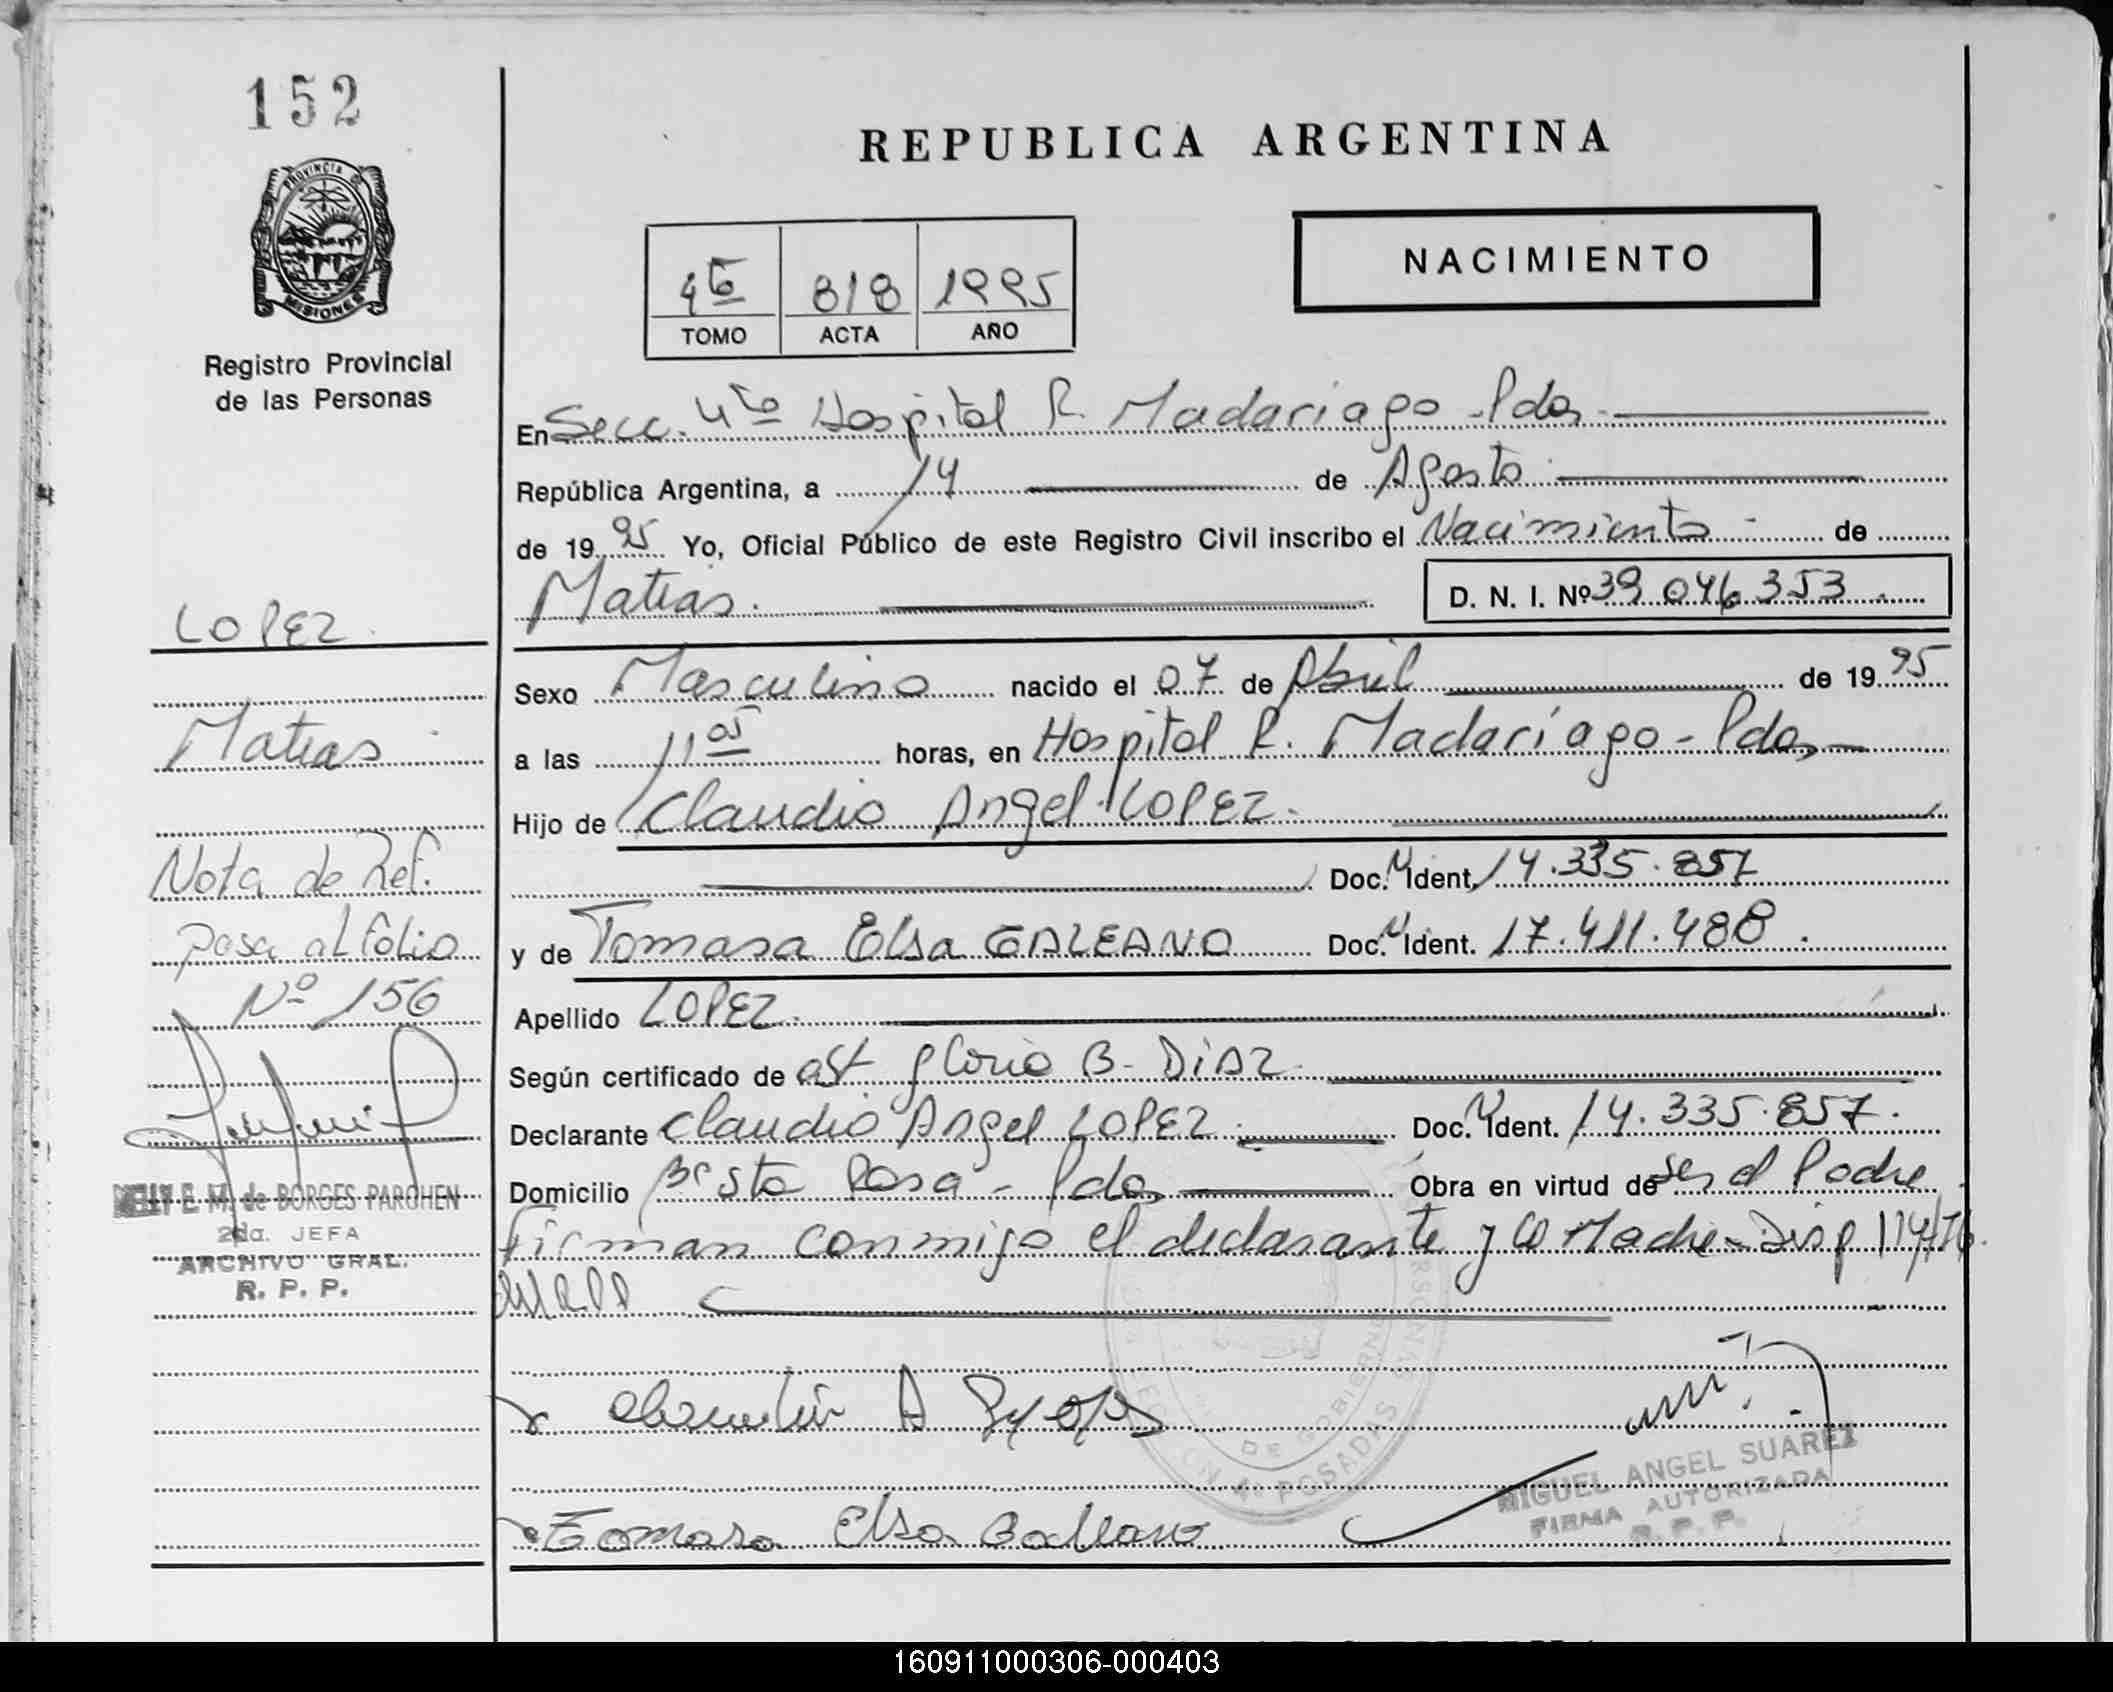 152
REPUBLICA ARGENTINA
PROVINCIA DE
MISIONES
Registro Provincial
de las Personas
NACIMIENTO
4to 818 1995
TOMO ACTA AÑO
En Secc. 4to Hospital R. Madariaga - Pdas
República Argentina, a 14 de Agosto
de 1995 Yo, Oficial Público de este Registro Civil inscribo el Nacimiento de
Matias. D. N. I. Nº 39 046 353
LOPEZ
Sexo Masculino nacido el 07 de Abril de 1995
Matias
a las 11 05 horas, en Hospital R. Madariaga - Pdas
Hijo de Claudio Angel LOPEZ.
Nota de Ref.
Doc. N Ident. 14.335.857
pasa al folio
y de Tomasa Elsa GALEANO Doc. N Ident. 17.411.488.
Nº 156
Apellido LOPEZ
Según certificado de ast Gloria B. DIAZ
Declarante Claudio Angel LOPEZ Doc. N Ident. 14.335.857.
Domicilio Bº Sta Rosa - Pdas Obra en virtud de ser el Padre
E. M. de BORGES PARCHEN
2da. JEFA
ARCHIVO GRAL.
R. P. P.
Firman conmigo el declarante y la Madre - Disp 114/76
DE GOBIERNO
4º POSADAS
MIGUEL ANGEL SUAREZ
FIRMA AUTORIZADA
R. P. P.
Tomasa Elsa Galeano
160911000306-000403